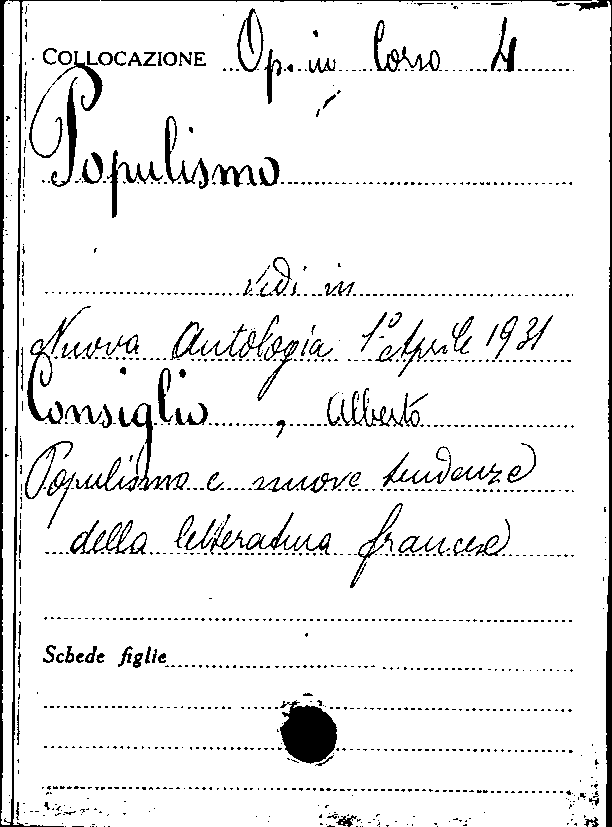 COLLOCAZIONE Op. in Corso 4
Populismo
vedi in
Nuova Antologia 1° Aprile 1931
Consiglio, Alberto
Populismo e nuove tendenze
della letteratura francese
Schede figlie